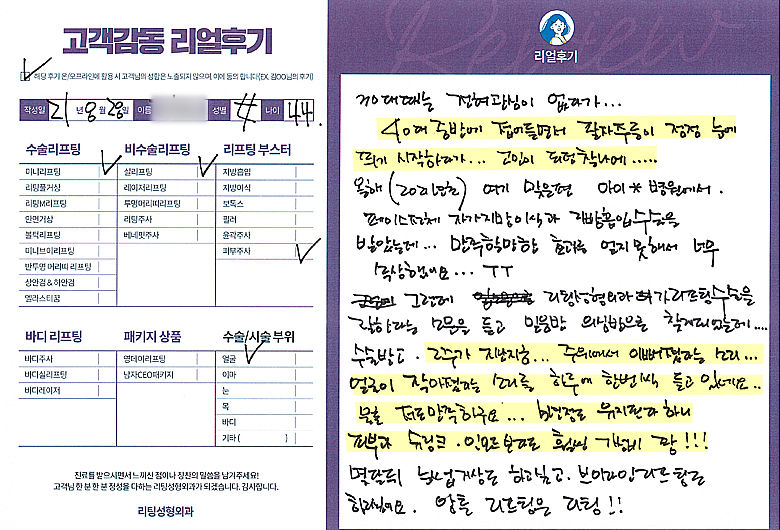 고객감동 리얼후기
해당 후기 온/오프라인에 활용 시 고객님의 성함은 노출되지 않으며, 이에 동의 합니다(EX, 김OO님의 후기)
작성일 21 년 8 월 28 일 이름 성별 나이 44.
수술리프팅
미니리프팅
리팅풀거상
리팅M리프팅
안면거상
볼턱리프팅
미니브이리프팅
반투명 머리띠 리프팅
상안검 & 하안검
엘라스티꿈
비수술리프팅
실리프팅
레이저리프팅
투명머리띠리프팅
리팅주사
베네핏주사
리프팅 부스터
지방흡입
지방이식
보톡스
필러
윤곽주사
피부주사
바디 리프팅
바디주사
바디실리프팅
바디레이저
패키지 상품
영데이리프팅
남자CEO패키지
수술/시술 부위
얼굴
이마
눈
목
바디
기타 ( )
진료를 받으시면서 느끼신 점이나 칭찬의 말씀을 남겨주세요!
고객님 한 분 한 분 정성을 다하는 리팅성형외과가 되겠습니다. 감사합니다.
리팅성형외과
Review
리얼후기
30대때는 접혀관심이 없다가...
40대 중반에 접어들면서 팔자주름이 점점 눈에
띄기 시작하다가... 고민이 되던찰나에.....
올해 (2021년도) 여기 맞은편 아이*병원에서.
페이스전체 자가지방이식과 지방흡입수술을
받았는데... 만족할만한 효과를 얻지 못해서 너무
속상했어요... ㅜㅜ
그런데 리팅성형외과가 리프팅수술을
잘한다는 소문을 듣고 믿음반 의심반으로 찾게되었는데....
수술받고. 2주가 지난지금... 주위에서 이뻐졌다는 소리...
얼굴이 작아졌다는 소리를 하루에 한번씩 듣고 있네요..
물론 저도만족하구요... 10년정도 유지된다 하니
피부과 슈링크. 인모드보다도 훨씬 가성비 짱!!!
몇달뒤 눈썹거상도 하고싶고. 브이라인리프팅도
하고싶어요. 암튼 리프팅은 리팅!!